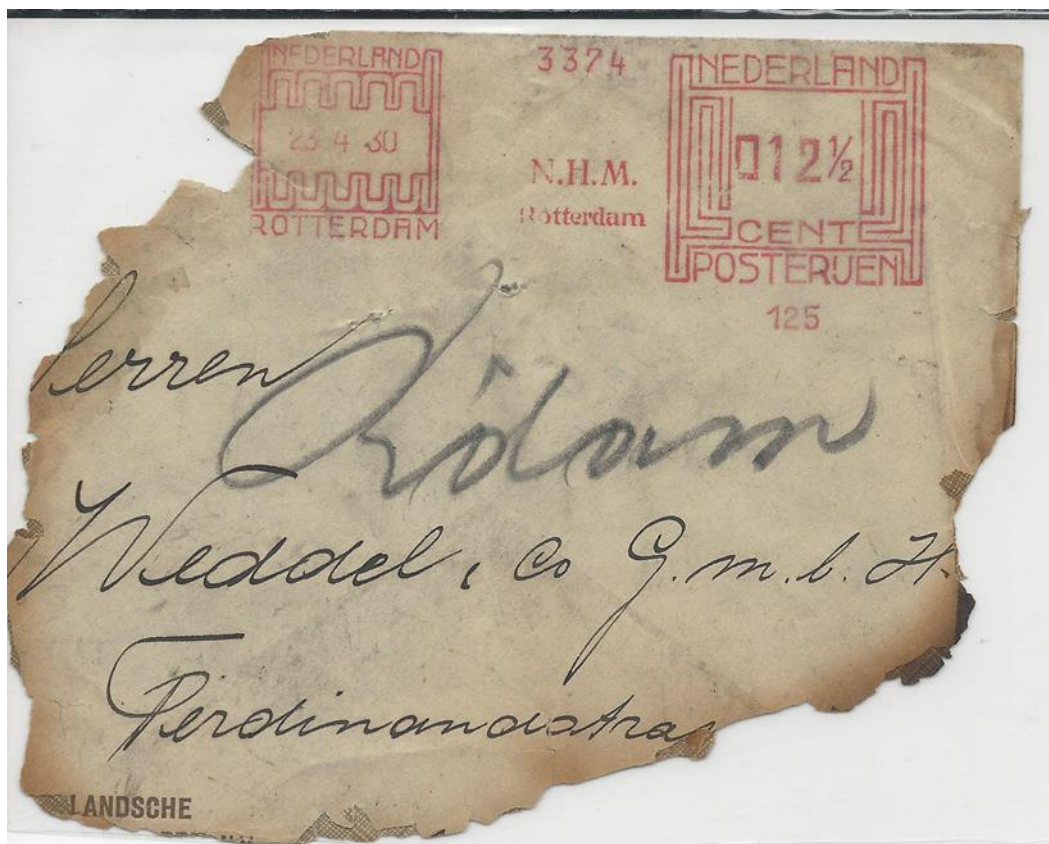 NEDERLAND
23 4 30
ROTTERDAM
3374
N.H.M.
Rotterdam
NEDERLAND
012½
CENT
POSTERIJEN
125
Herren
R'dam
Weddel, Co G.m.b.H.
Ferdinandstra
LANDSCHE